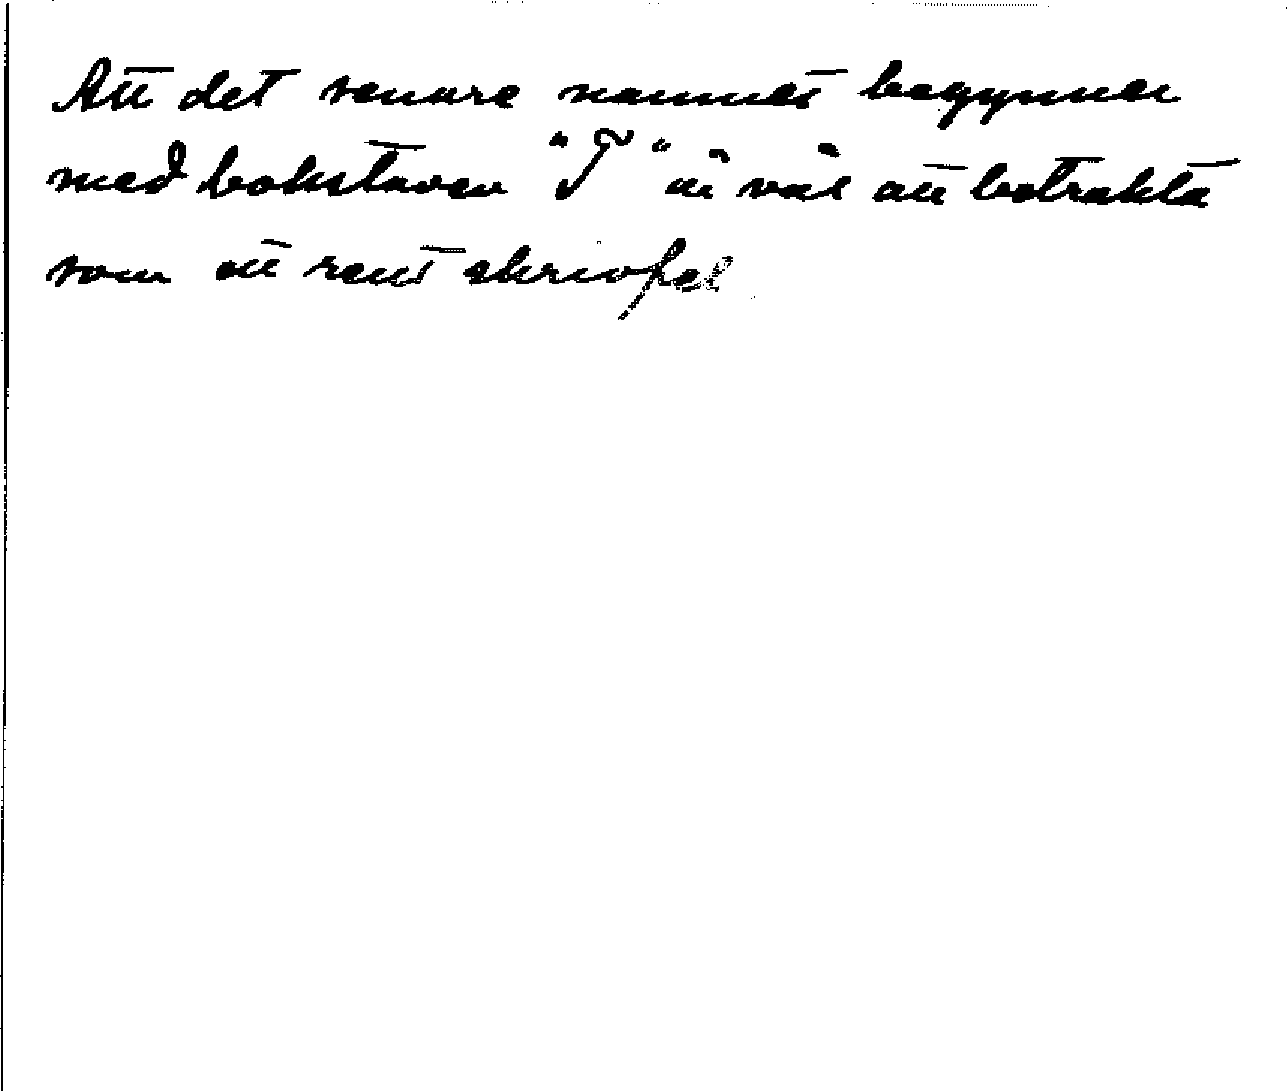 Att det senare namnet begynner
med bokstaven "T" är väl att betrakta
som ett rent skrivfel